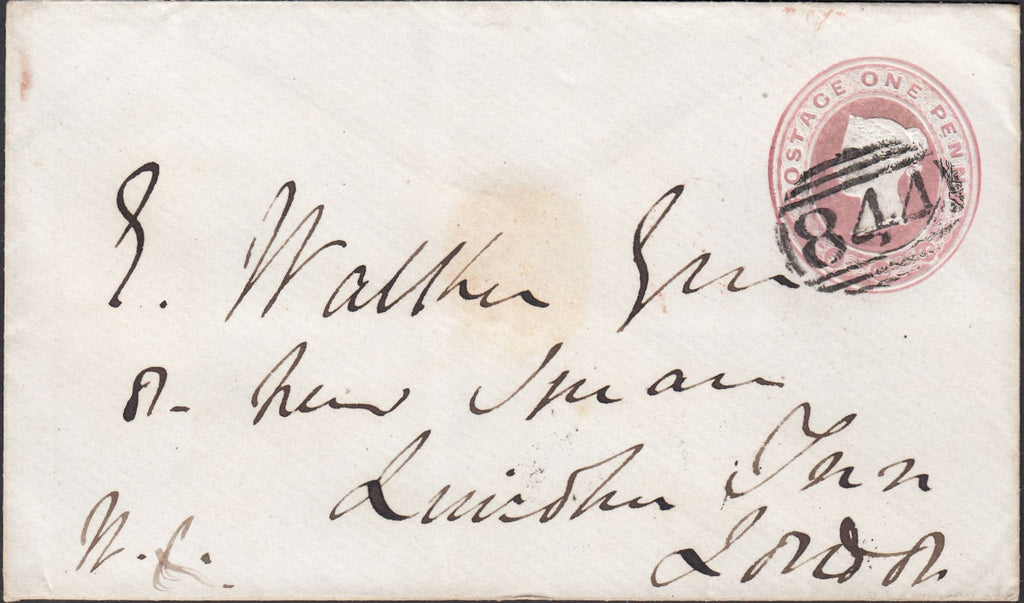 POSTAGE ONE PENNY
844
E. Walker Esqr
8 - New Square
Lincoln Inn
W.C. London